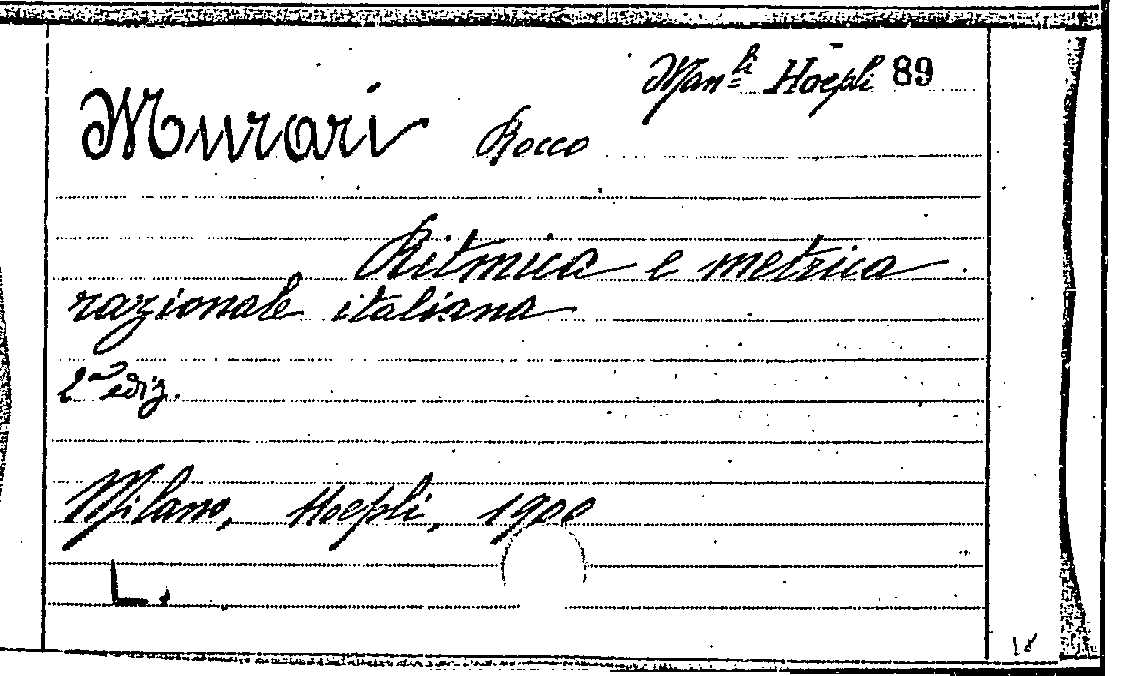 Man.li Hoepli 89
Murari Rocco
Ritmica e metrica
razionale italiana
2a ediz.
Milano, Hoepli, 1900
L.
18